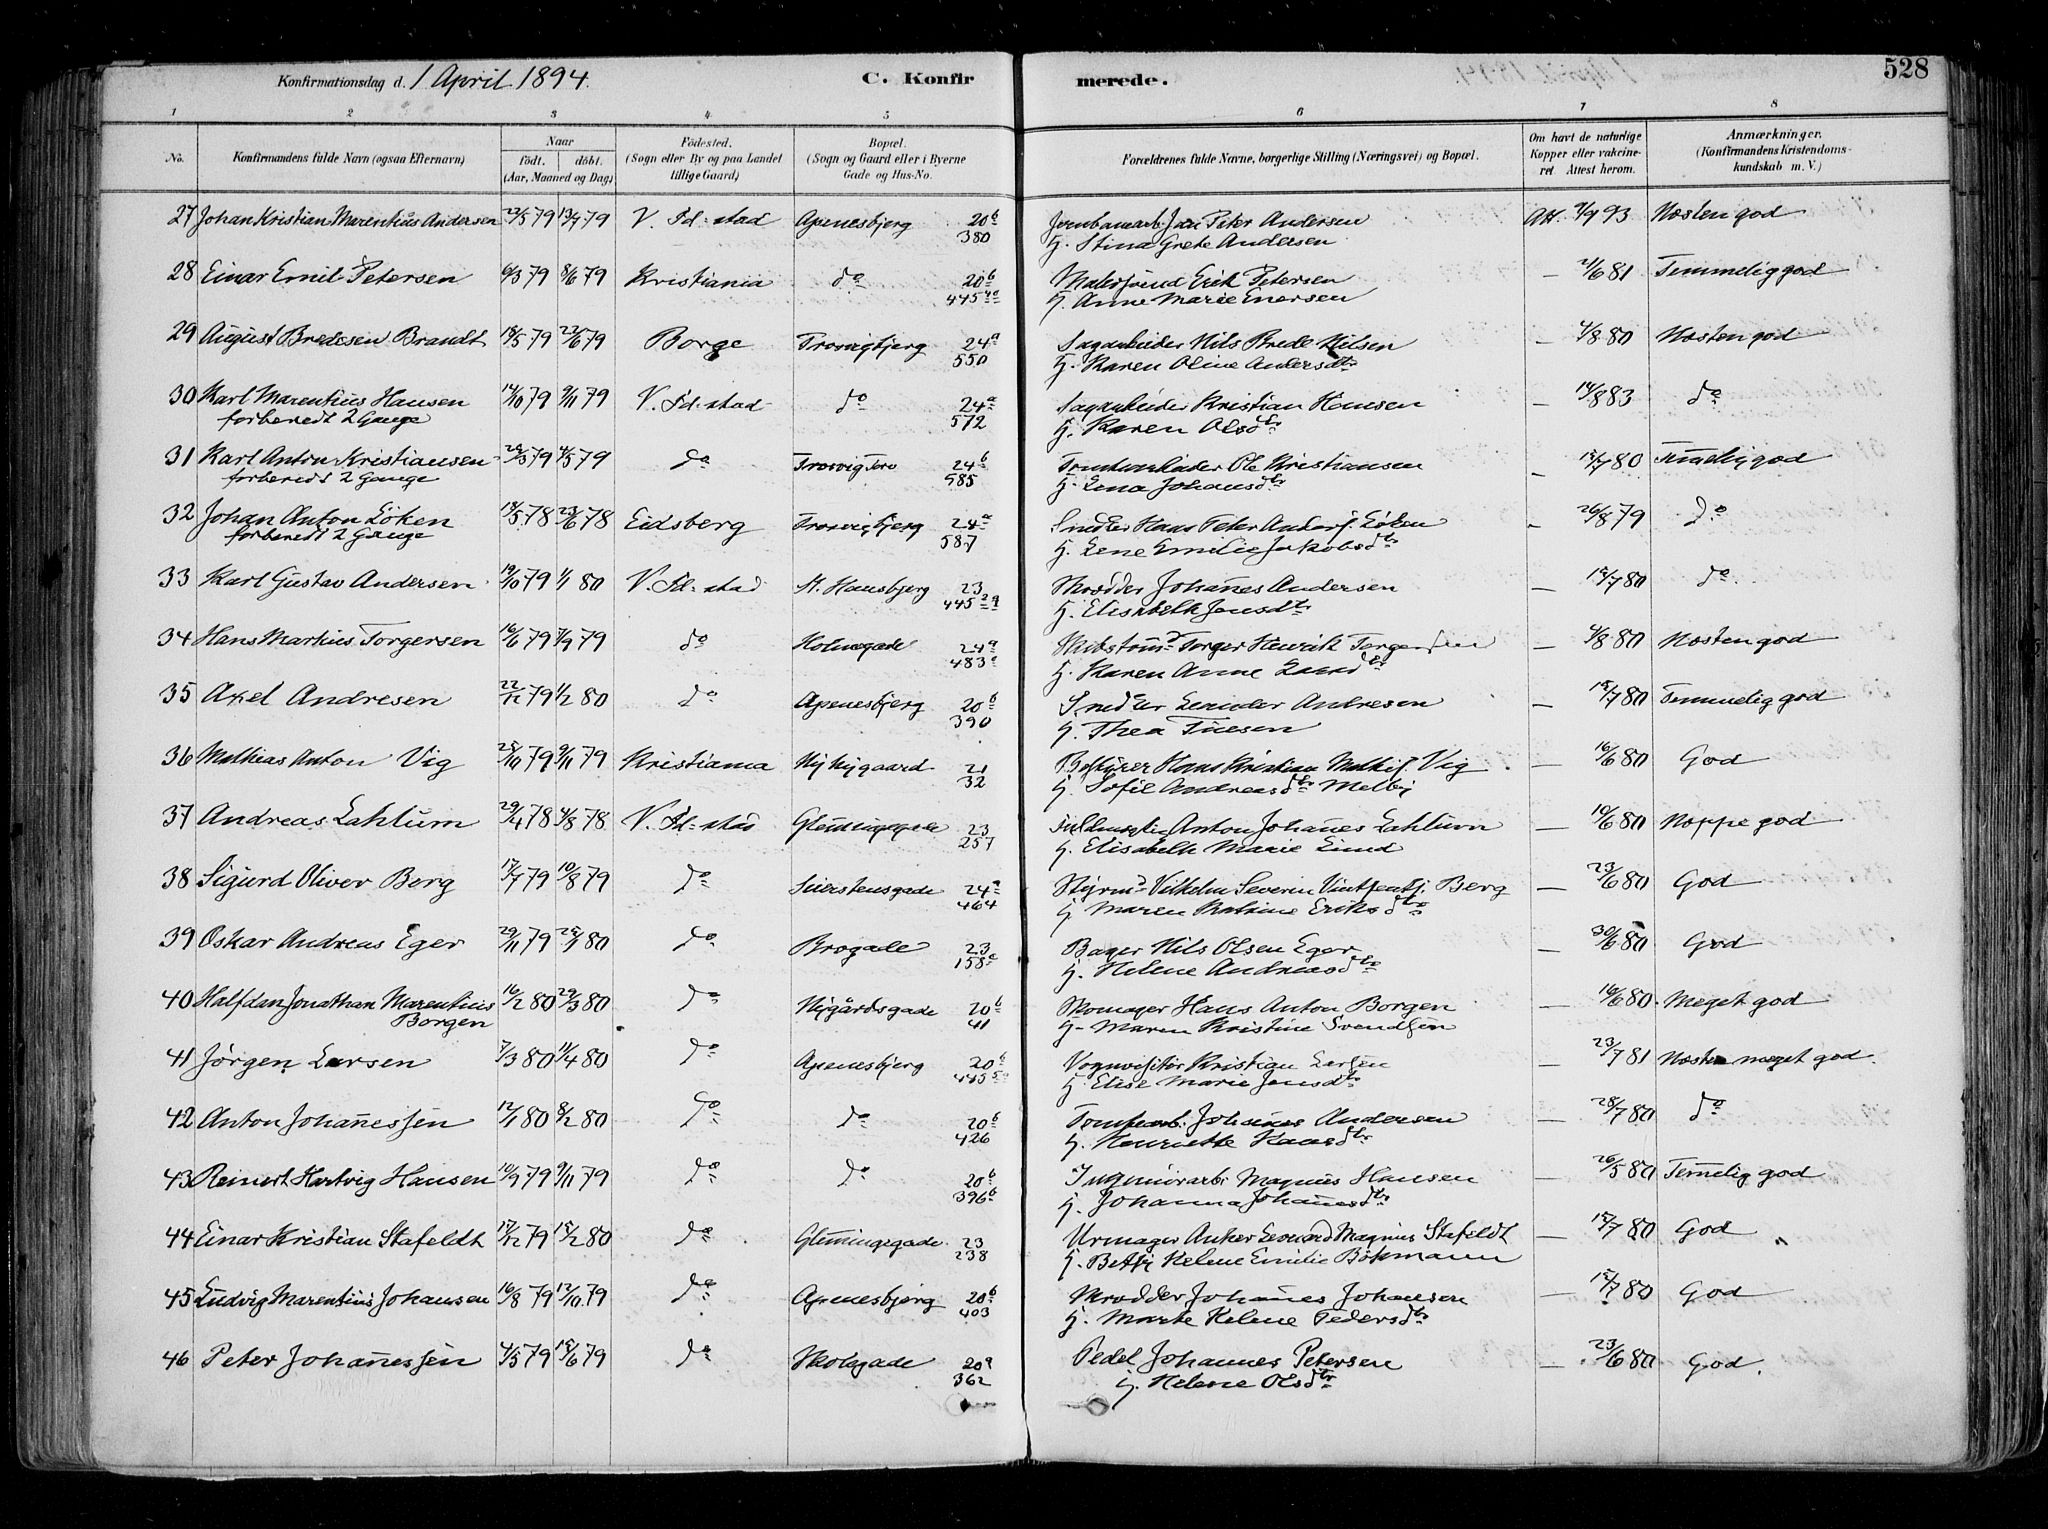 528
Konfirmationsdag d. 1 April 1894. C. Konfirmerede.
1 2 3 4 5 6 7 8
No. Konfirmandens fulde Navn (ogsaa Efternavn) Naar födt. döbt. (Aar, Maaned og Dag) Födested. (Sogn eller By og paa Landet tillige Gaard) Bopæl. (Sogn og Gaard eller i Byerne Gade og Hus-No. Forældrenes fulde Navne, borgerlige Stilling (Næringsvei) og Bopæl. Om havt de naturlige Kopper eller vakcineret Attest herom. Anmærkninger. (Konfirmandens Kristendomskundskab m. V.)
27 Johan Kristian Marentius Andersen 23/5 79 13/7 79 V. Fd.stad Apenesbjerg 20b Jernbanearb. Jan Peter Andersen Att. 9/9 93 Næsten god
380 H. Stina Grete Andersen
28 Einar Emil Petersen 6/3 79 8/6 79 Kristiania do 20b Malersvend Erik Petersen — 21/6 81 Temmelig god
445 H. Anne Marie Enersen
29 August Bredesen Brandt 18/5 79 22/6 79 Borge Trosvigbjerg 24a Sagarbeider Nils Brede Nilsen — 4/8 80 Næsten god
550 H. Karen Oline Andersdtr
30 Karl Marentius Hansen 14/10 79 9/11 79 V. Fd.stad do 24a Sagarbeider Kristian Hansen — 14/8 83 do
forberedt 2 Gange 572 H. Karen Olsdtr
31 Karl Anton Kristiansen 79 4/5 79 do Trosvig 24b Tomtearbeider Ole Kristiansen — 15/7 80 Temmelig god
forberedt 2 Gange 585 H. Lena Johansdtr
32 Johan Anton Löken 18/5 78 23/6 78 Eidsberg Trosvigbjerg 24a Snedker Hans Peter Anders. Löken — 26/8 79 do
forberedt 2 Gange 587 H. Lene Emilie Jakobsdtr
33 Karl Gustav Andersen 19/10 79 1/1 80 V. Fd.stad St. Hansbjerg 23 Skrædder Johannes Andersen — 15/7 80 do
445 H. Elisabeth Jensdtr
34 Hans Markus Torgersen 16/6 79 7/9 79 do Holmegade 24a Skibstømd. Torger Henrik Torgersen — 4/8 80 Næsten god
483 H. Karen Anne dtr
35 Axel Andresen 22/12 79 1/2 80 do Apenesbjerg 20b Snedker Leander Andresen — 15/7 80 Temmelig god
390 H. Thea
36 Mathias Anton Vig 25/10 79 9/11 79 Kristiania Nygaard 21 Bestyrer Hans Kristian Mathis. Vig — 16/6 80 God
32 H. Sofie Andreasdtr Melby
37 Andreas Lahlum 29/4 78 4/8 78 V. Fd.stad Glemmingegade 23 Anton Johannes Lahlum — 10/6 80 Neppe god
257 H. Elisabeth Marie Lund
38 Sigurd Oliver Berg 17/7 79 10/8 79 do 24a Styrmd. Vilhelm Severin Berg — 23/6 80 God
464 H. Maren Eriksdtr
39 Oskar Andreas Eger 29/11 79 25/1 80 do Brogade 23 Bager Nils Olsen Eger — 30/6 80 God
158a H. Helene Andreasdtr
40 Halfdan Jonathan Marentius 16/2 80 29/3 80 do Nygårdsgade 20b Skomager Hans Anton Borgen — 16/6 80 Meget god
Borgen 41 H. Maren Kristine Svendsen
41 Jörgen Larsen 7/3 80 11/4 80 do Apenesbjerg 20b Vognvisitör Kristian Larsen — 23/7 81 Næsten meget god
445 H. Elise Marie Jensdtr
42 Anton Johannessen 12/1 80 8/2 80 do do 20b Tomtearb. Johannes Andersen — 28/7 80 do
426 H. Henriette Hansdtr
43 Reinert Hartvig Hansen 10/9 79 9/11 79 do do 20b Magnus Hansen — 26/5 80 Temmelig god
396b H. Johanna Johannesdtr
44 Einar Kristian Stafeldt 17/12 79 15/2 80 do Glemmingegade 23 Urmager Anker Leonard Magnus Stafeldt — 15/7 80 God
238 H. Betsy Helene Emilie Böhmann
45 Ludvig Marentius Johansen 16/8 79 12/10 79 do Apenesbjerg 20b Skrædder Johannes Johansen — 15/7 80 God
403 H. Marte Helene Pedersdtr
46 Peter Johannessen 4/5 79 15/6 79 do Skolegade 20a Pedel Johannes Petersen — 23/6 80 God
362 H. Helene Olsdtr